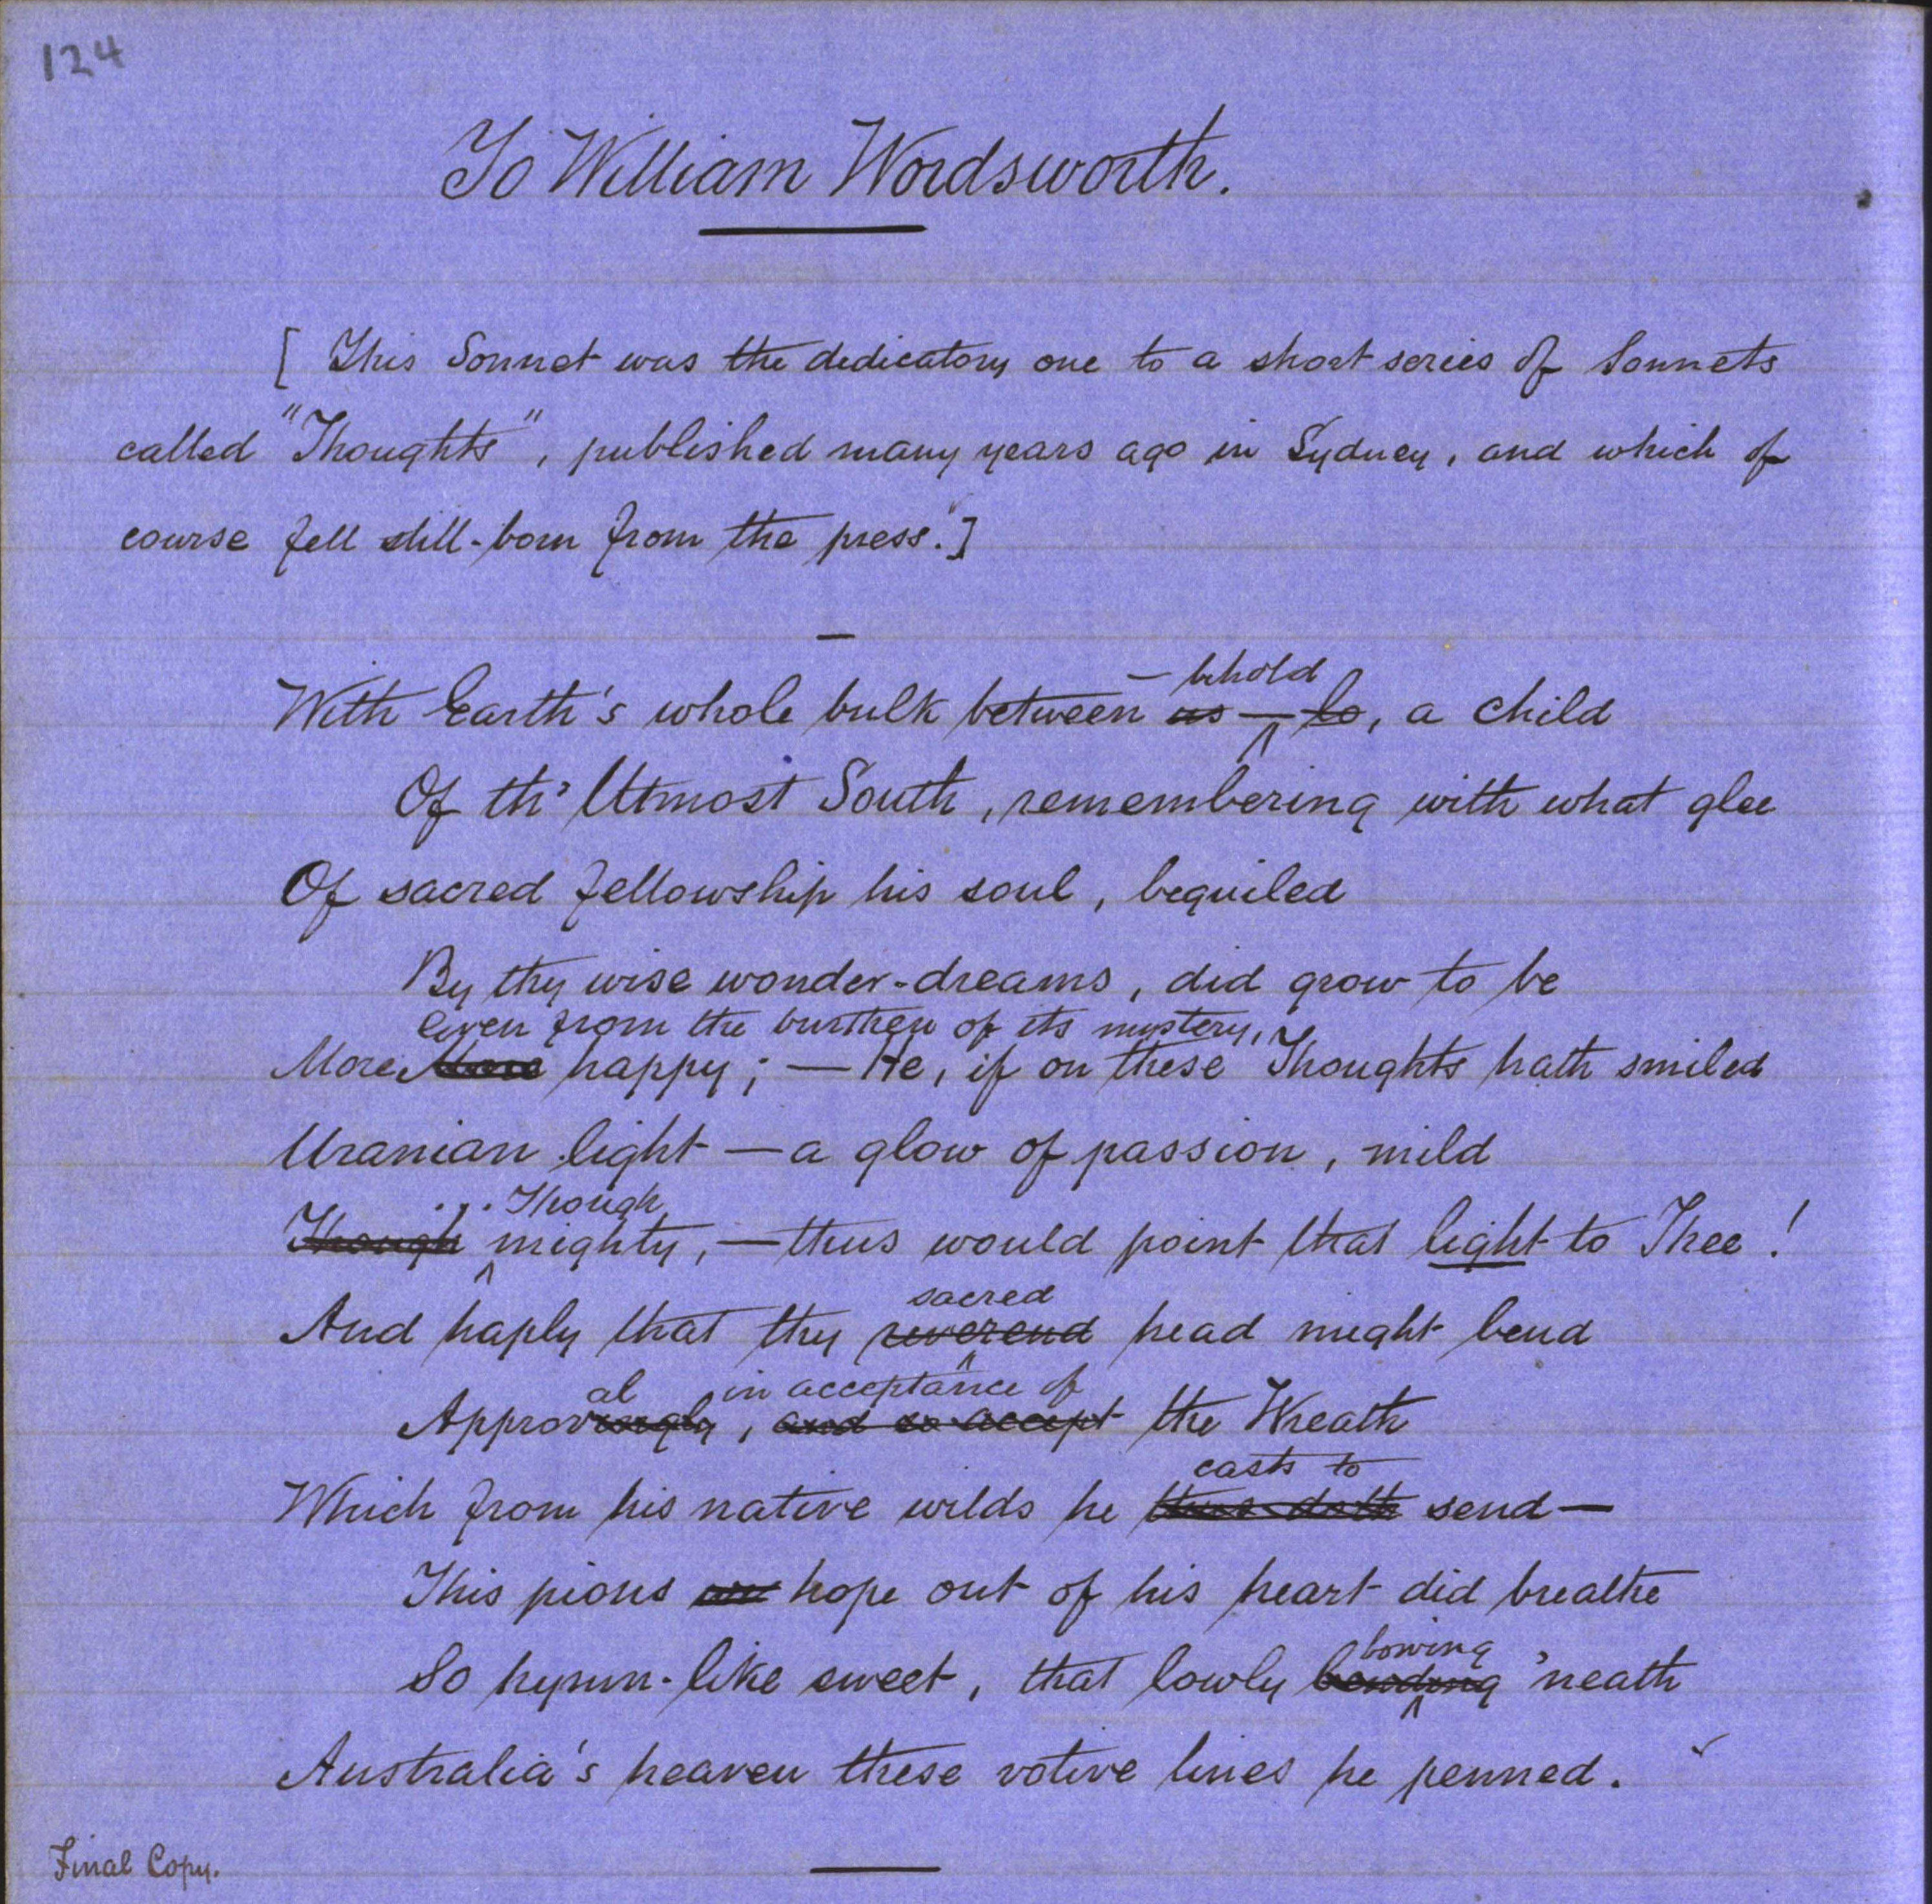 124
To William Wordsworth.
[ This Sonnet was the dedicatory one to a short series of Sonnets
called "Thoughts", published many years ago in Sydney, and which of
course fell still-born from the press.]
— behold
With Earth's whole bulk between us — lo, a child
Of th' Utmost South, remembering with what glee
Of sacred fellowship his soul, beguiled
By thy wise wonder-dreams, did grow to be
Even from the burthen of its mystery,
More More happy; — He, if on these Thoughts hath smiled
Uranian light — a glow of passion, mild
Though
Though mighty, — thus would point that light to Thee!
sacred
And haply that thy reverend head might bend
al in acceptance of
Approvingly, and so accept the Wreath
casts to
Which from his native wilds he thus doth send —
This pious hope out of his heart did breathe
bowing
So hymn-like sweet, that lowly bending 'neath
Australia's heaven these votive lines he penned.
Final Copy.